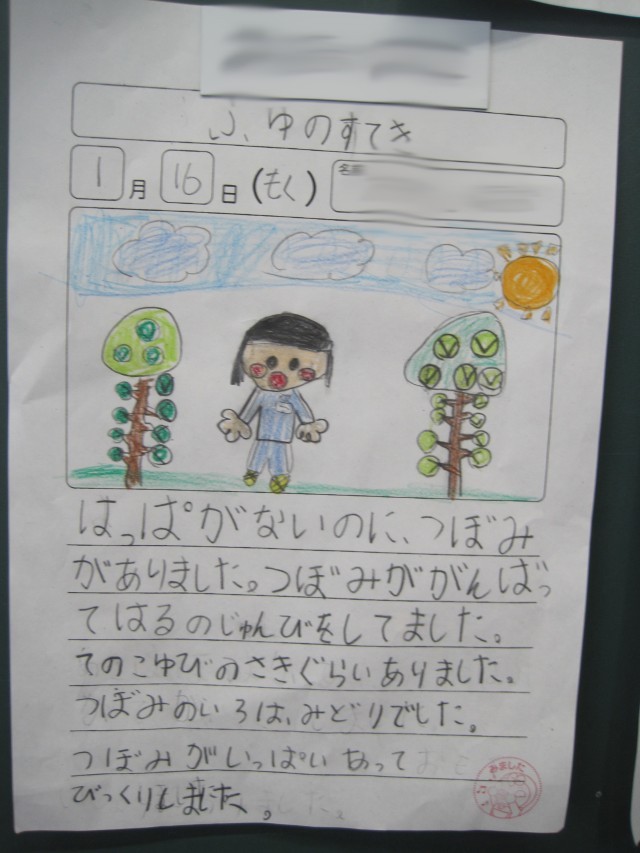 ふゆのすてき
1月16日(もく)
名前
はっぱがないのに、つぼみ
がありました。つぼみががんばっ
てはるのじゅんびをしてました。
てのこゆびのさきぐらいありました。
つぼみのいろは、みどりでした。
つぼみがいっぱいあって
びっくりしました。
みました